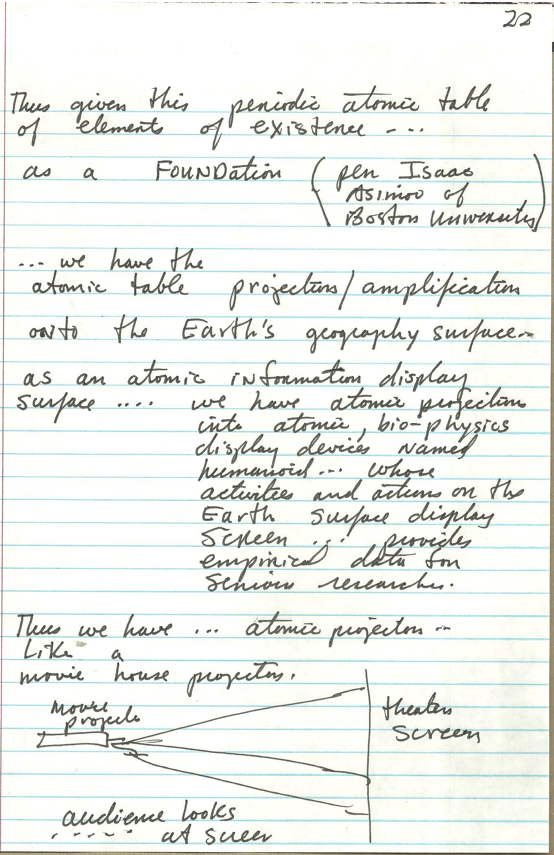 22
Thus given this periodic atomic table
of elements of existence ----
as a FOUNDation (pen Isaac
Asimov of
Boston University)
.... we have the
atomic table projection/amplification
onto the Earth's geography surface--
as an atomic information display
surface .... we have atomic projection
into atomic, bio-physics
display devices named
humanoid ... whose
activities and actions on the
Earth Surface display
Screen ... provides
empirical data for
serious researcher.
Thus we have ... atomic projectors --
Like a
movie house projector.
Movie
projector
theater
Screen
audience looks
..... at screen